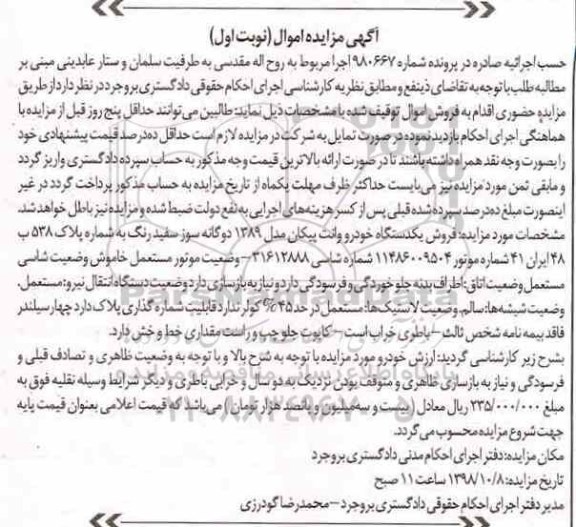 آگهی مزایده اموال (نوبت اول)
حسب اجرائیه صادره در پرونده شماره ۹۸۰۶۶۷ اجرا مربوط به روح اله مقدسی به طرفیت سلمان و ستار عابدینی مبنی بر
مطالبه طلب با توجه به تقاضای ذینفع و مطابق نظریه کارشناسی اجرای احکام حقوقی دادگستری بروجرد در نظر دارد از طریق
مزایده حضوری اقدام به فروش اموال توقیف شده با مشخصات ذیل نماید: طالبین می توانند حداقل پنج روز قبل از مزایده با
هماهنگی اجرای احکام بازدید نموده در صورت تمایل به شرکت در مزایده لازم است حداقل ده درصد قیمت پیشنهادی خود
را بصورت وجه نقد همراه داشته باشند تا در صورت ارائه بالاترین قیمت وجه مذکور به حساب سپرده دادگستری واریز گردد
و مابقی ثمن مورد مزایده نیز می بایست حداکثر ظرف مهلت یکماه از تاریخ مزایده به حساب مذکور پرداخت گردد در غیر
اینصورت مبلغ ده درصد سپرده شده قبلی پس از کسر هزینه های اجرایی به نفع دولت ضبط شده و مزایده نیز باطل خواهد شد.
مشخصات مورد مزایده: فروش یکدستگاه خودرو وانت پیکان مدل ۱۳۸۹ دوگانه سوز سفید رنگ به شماره پلاک ۵۳۸ ب
۴۸ ایران ۴۱ شماره موتور ۱۱۴۸۶۰۰۹۵۰۴ شماره شاسی ۳۱۶۱۲۸۸۸ – وضعیت موتور مستعمل خاموش وضعیت شاسی
مستعمل وضعیت اتاق: اطراف بدنه جلو خوردگی و فرسودگی دارد و نیاز به بازسازی دارد وضعیت دستگاه انتقال نیرو: مستعمل.
وضعیت شیشه ها: سالم. وضعیت لاستیک ها: مستعمل در حد ۴۵% کولر ندارد قابلیت شماره گذاری پلاک دارد چهار سیلندر
فاقد بیمه نامه شخص ثالث – باطری خراب است – کاپوت جلو چپ و راست مقداری خط و خش دارد.
بشرح زیر کارشناسی گردید: ارزش خودرو مورد مزایده با توجه به شرح بالا و با توجه به وضعیت ظاهری و تصادف قبلی و
فرسودگی و نیاز به بازسازی ظاهری و متوقف بودن نزدیک به دو سال و خرابی باطری و دیگر شرایط وسیله نقلیه فوق به
مبلغ ۲۳۵/۰۰۰/۰۰۰ ریال معادل (بیست و سه میلیون و پانصد هزار تومان) می باشد که قیمت اعلامی بعنوان قیمت پایه
جهت شروع مزایده محسوب می گردد.
مکان مزایده: دفتر اجرای احکام مدنی دادگستری بروجرد
تاریخ مزایده: ۱۳۹۸/۱۰/۸ ساعت ۱۱ صبح
مدیر دفتر اجرای احکام حقوقی دادگستری بروجرد – محمدرضا گودرزی